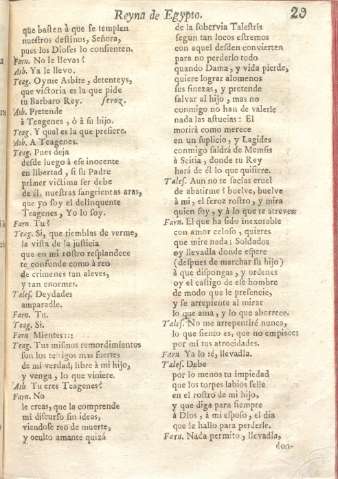 Reyna de Egypto.
29
que basten à que se templen
nuestros destinos, Señora,
pues los Dioses lo consienten.
Farn. No le llevas?
Asb. Ya le llevo.
Teag. Oyme Asbite, detenteys,
que victoria es la que pide
tu Barbaro Rey. feroz.
Asb. Pretende
à Teagenes, ò à su hijo.
Teag. Y qual es la que prefiere.
Asb. A Teagenes.
Teag. Pues deja
desde luego à ese inocente
en libertad, si su Padre
primer victima ser debe
de èl. nuestras sangrientas aras,
que yo soy el delinquente
Teagenes, Yo lo soy.
Farn. Tu?
Teag. Si, que tiemblas de verme,
la vista de la justicia
que en mi rostro resplandece
te confunde como à reo
de crimenes tan aleves,
y tan enormes.
Tales. Deydades
amparadle.
Farn. Tu.
Teag. Si.
Farn Mientes:::
Teag. Tus mismos remordimientos
son los testigos mas fuertes
de mi verdad, libre à mi hijo,
y venga, lo que viniere.
Asb Tu eres Teagenes?
Farn. No
le creas, que la comprende
mi discurso sin ideas,
viendose reo de muerte,
y oculto amante quizá
de la sobervia Talestris
segun tan locos estremos
con aquel desden convierten
para no perderlo todo
quando Dama, y vida pierde,
quiere lograr alomenos
sus finezas, y pretende
salvar al hijo, mas no
conmigo no han de valerle
nada las astucias: El
morirá como merece
en un suplicio, y Lagides
conmigo saldrá de Memfis
à Scitia, donde tu Rey
hará de èl lo que quisiere.
Tales. Aun no te sacias cruel
de abatirme! buelve, buelve
à mi, el feroz rostro, y mira
quien soy, y à lo que te atreves
Farn. El que ha sido inexorable
con amor celoso, quieres
que mire nada: Soldados
oy llevadla donde espere
(despues de marchar su hijo)
à que dispongas, y ordenes
oy el castigo de ese hombre
de modo que le presencie,
y se arrepiente al mirar
lo que ama, y lo que aborrece.
Tales. No me arrepentiré nunca,
lo que siento es, que no empieces
por mi tus atrocidades.
Farn Ya lo sé, llevadla.
Tales. Debe
por lo menos tu impiedad
que los torpes labios selle
en el rostro de mi hijo,
y que diga para siempre
à Dios, à mi esposo, el dia
que le hallo para perderle.
Farn. Nada permito, llevadla,
don-